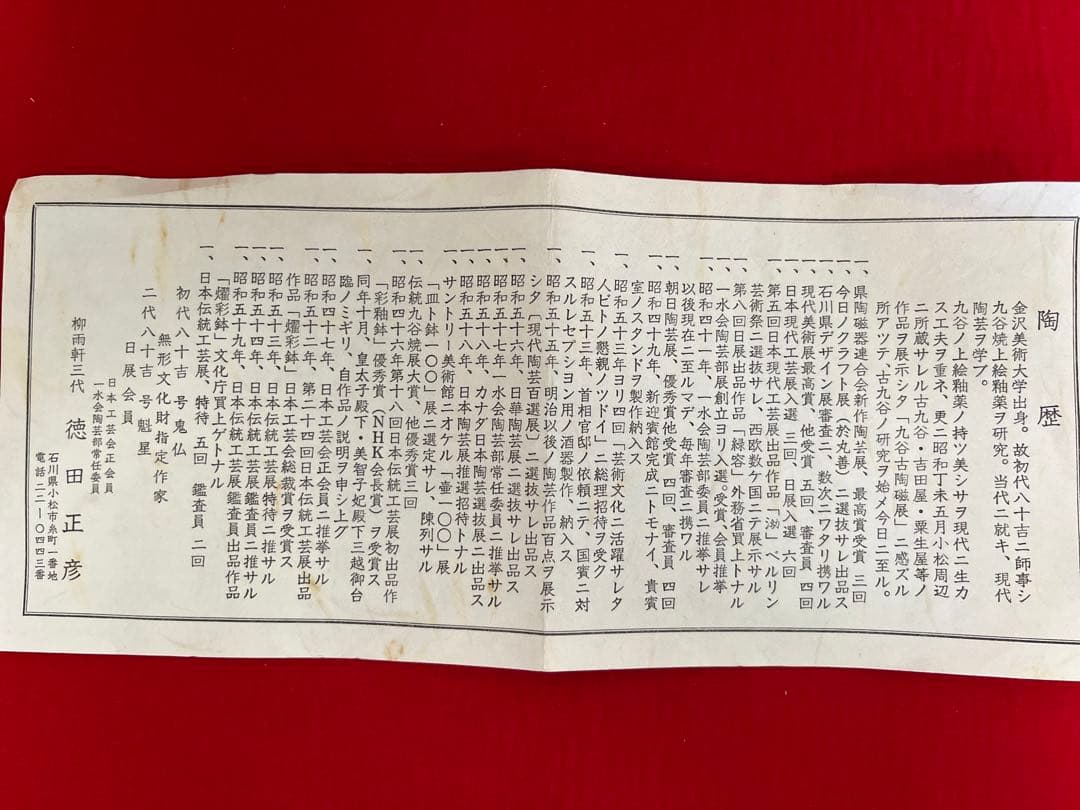 陶歴
金沢美術大学出身。故初代八十吉ニ師事シ
九谷焼上絵釉薬ヲ研究。当代ニ就キ、現代
陶芸ヲ学ブ。
九谷ノ上絵釉薬ノ持ツ美シサヲ現代ニ生カ
ス工夫ヲ重ネ、更ニ昭和丁未五月小松周辺
ニ所蔵サレル古九谷・吉田屋・粟生屋等ノ
作品ヲ展示シタ「九谷古陶磁展」ニ感ズル
所アッテ、古九谷ノ研究ヲ始メ今日ニ至ル。
一、県陶磁器連合会新作陶芸展、最高賞受賞 三回
一、今日ノクラフト展（於丸善）ニ選抜サレ出品ス
一、石川県デザイン展審査ニ、数次ニワタリ携ワル
一、現代美術展最高賞、他受賞 五回、審査員 四回
一、日本現代工芸展入選 三回、日展入選 六回
一、第五回日本現代工芸展出品作品「泑」ベルリン
芸術祭ニ選抜サレ、西欧数ケ国ニテ展示サル
一、第八回日展出品作品「緑容」外務省買上トナル
一、一水会陶芸部展創立ヨリ入選。受賞、会員推挙
一、昭和四十一年、一水会陶芸部委員ニ推挙サレ
以後現在ニ至ルマデ、毎年審査ニ携ワル
一、朝日陶芸展、優秀賞他受賞 四回、審査員 四回
一、昭和四十九年、新迎賓館完成ニトモナイ、貴賓
室ノスタンドヲ製作納入ス
一、昭和五十三年ヨリ四回「芸術文化ニ活躍サレタ
人ビトノ懇親ノツドイ」ニ総理招待ヲ受ク
一、昭和五十三年、首相官邸ノ依頼ニテ、国賓ニ対
スルレセプション用ノ酒器製作、納入ス
一、昭和五十五年、明治以後ノ陶芸作品百点ヲ展示
シタ〔現代陶芸百選展〕ニ選抜サレ出品ス
一、昭和五十六年、日華陶芸展ニ選抜サレ出品ス
一、昭和五十七年、一水会陶芸部常任委員ニ推挙サル
一、昭和五十八年、カナダ日本陶芸選抜展ニ出品ス
一、昭和五十八年、日本陶芸展推選招待トナル
一、サントリー美術館ニオケル「壷一〇〇」展
「皿ト鉢一〇〇」展ニ選定サレ、陳列サル
一、伝統九谷焼展大賞、他優秀賞三回
一、昭和四十六年第十八回日本伝統工芸展初出品作
「彩釉鉢」優秀賞（NHK会長賞）ヲ受賞ス
一、同年十月、皇太子殿下・美智子妃殿下三越御台
臨ノミギリ、自作品ノ説明ヲ申シ上グ
一、昭和四十七年、日本工芸会正会員ニ推挙サル
一、昭和五十二年、第二十四回日本伝統工芸展出品
作品「燿彩鉢」日本工芸会総裁賞ヲ受賞ス
一、昭和五十三年、日本伝統工芸展特待ニ推サル
一、昭和五十四年、日本伝統工芸展鑑査員ニ推サル
一、昭和五十九年、日本伝統工芸展鑑査員出品作品
「燿彩鉢」文化庁買上ゲトナル
一、日本伝統工芸展、特待 五回 鑑査員 二回
初代八十吉 号 鬼仏
無形文化財指定作家
二代八十吉 号 魁星
日展会員
日本工芸会正会員
一水会陶芸部常任委員
柳雨軒三代 徳田正彦
石川県小松市糸町一番地
電話二二―〇四四三番